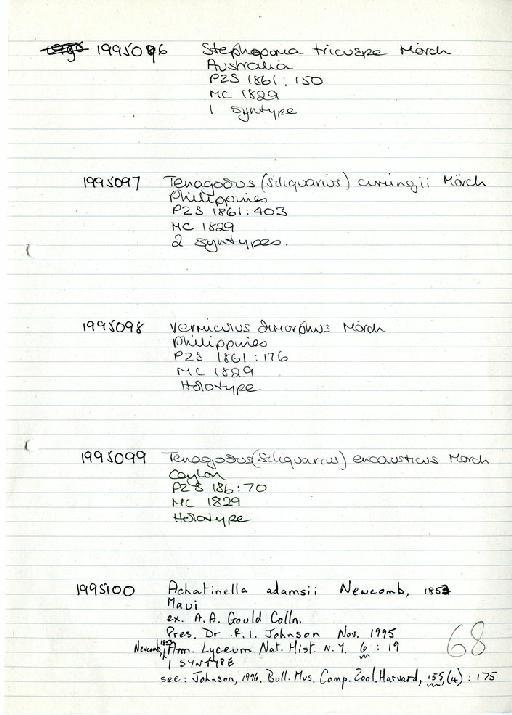 1995096 Stephopoma tricuspe Mörch
Australia
PZS 1861:150
MC 1829
1 syntype
1995097 Tenagodus (Siliquarius) cumingii Mörch
Philippines
PZS 1861:403
MC 1829
2 syntypes.
1995098 Vermiculus dimorphus Mörch
Philippines
PZS 1861:176
MC 1829
Holotype
1995099 Tenagodus (Siliquarius) encausticus Mörch
Ceylon
PZS 186:70
MC 1829
Holotype
1995100 Achatinella adamsii Newcomb, 1853
Maui
ex. A.A. Gould Colln.
Pres. Dr R.I. Johnson Nov. 1995
Newcomb, Ann. Lyceum Nat. Hist. N.Y. 6 : 19
1 SYNTYPE
see: Johnson, 1996. Bull. Mus. Comp. Zool. Harvard, 155(4) : 175
68